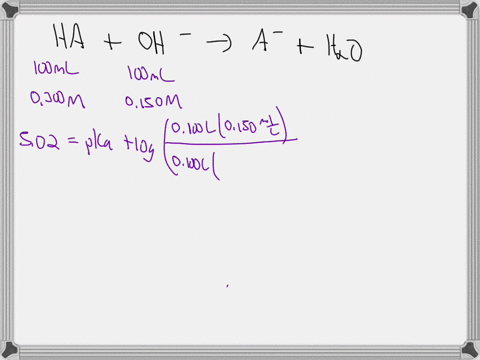 HA + OH⁻ → A⁻ + H₂O
100mL 100mL
0.300M 0.150M
5.02 = pKa + log (0.100L(0.150 mol/L)) / (0.100L(